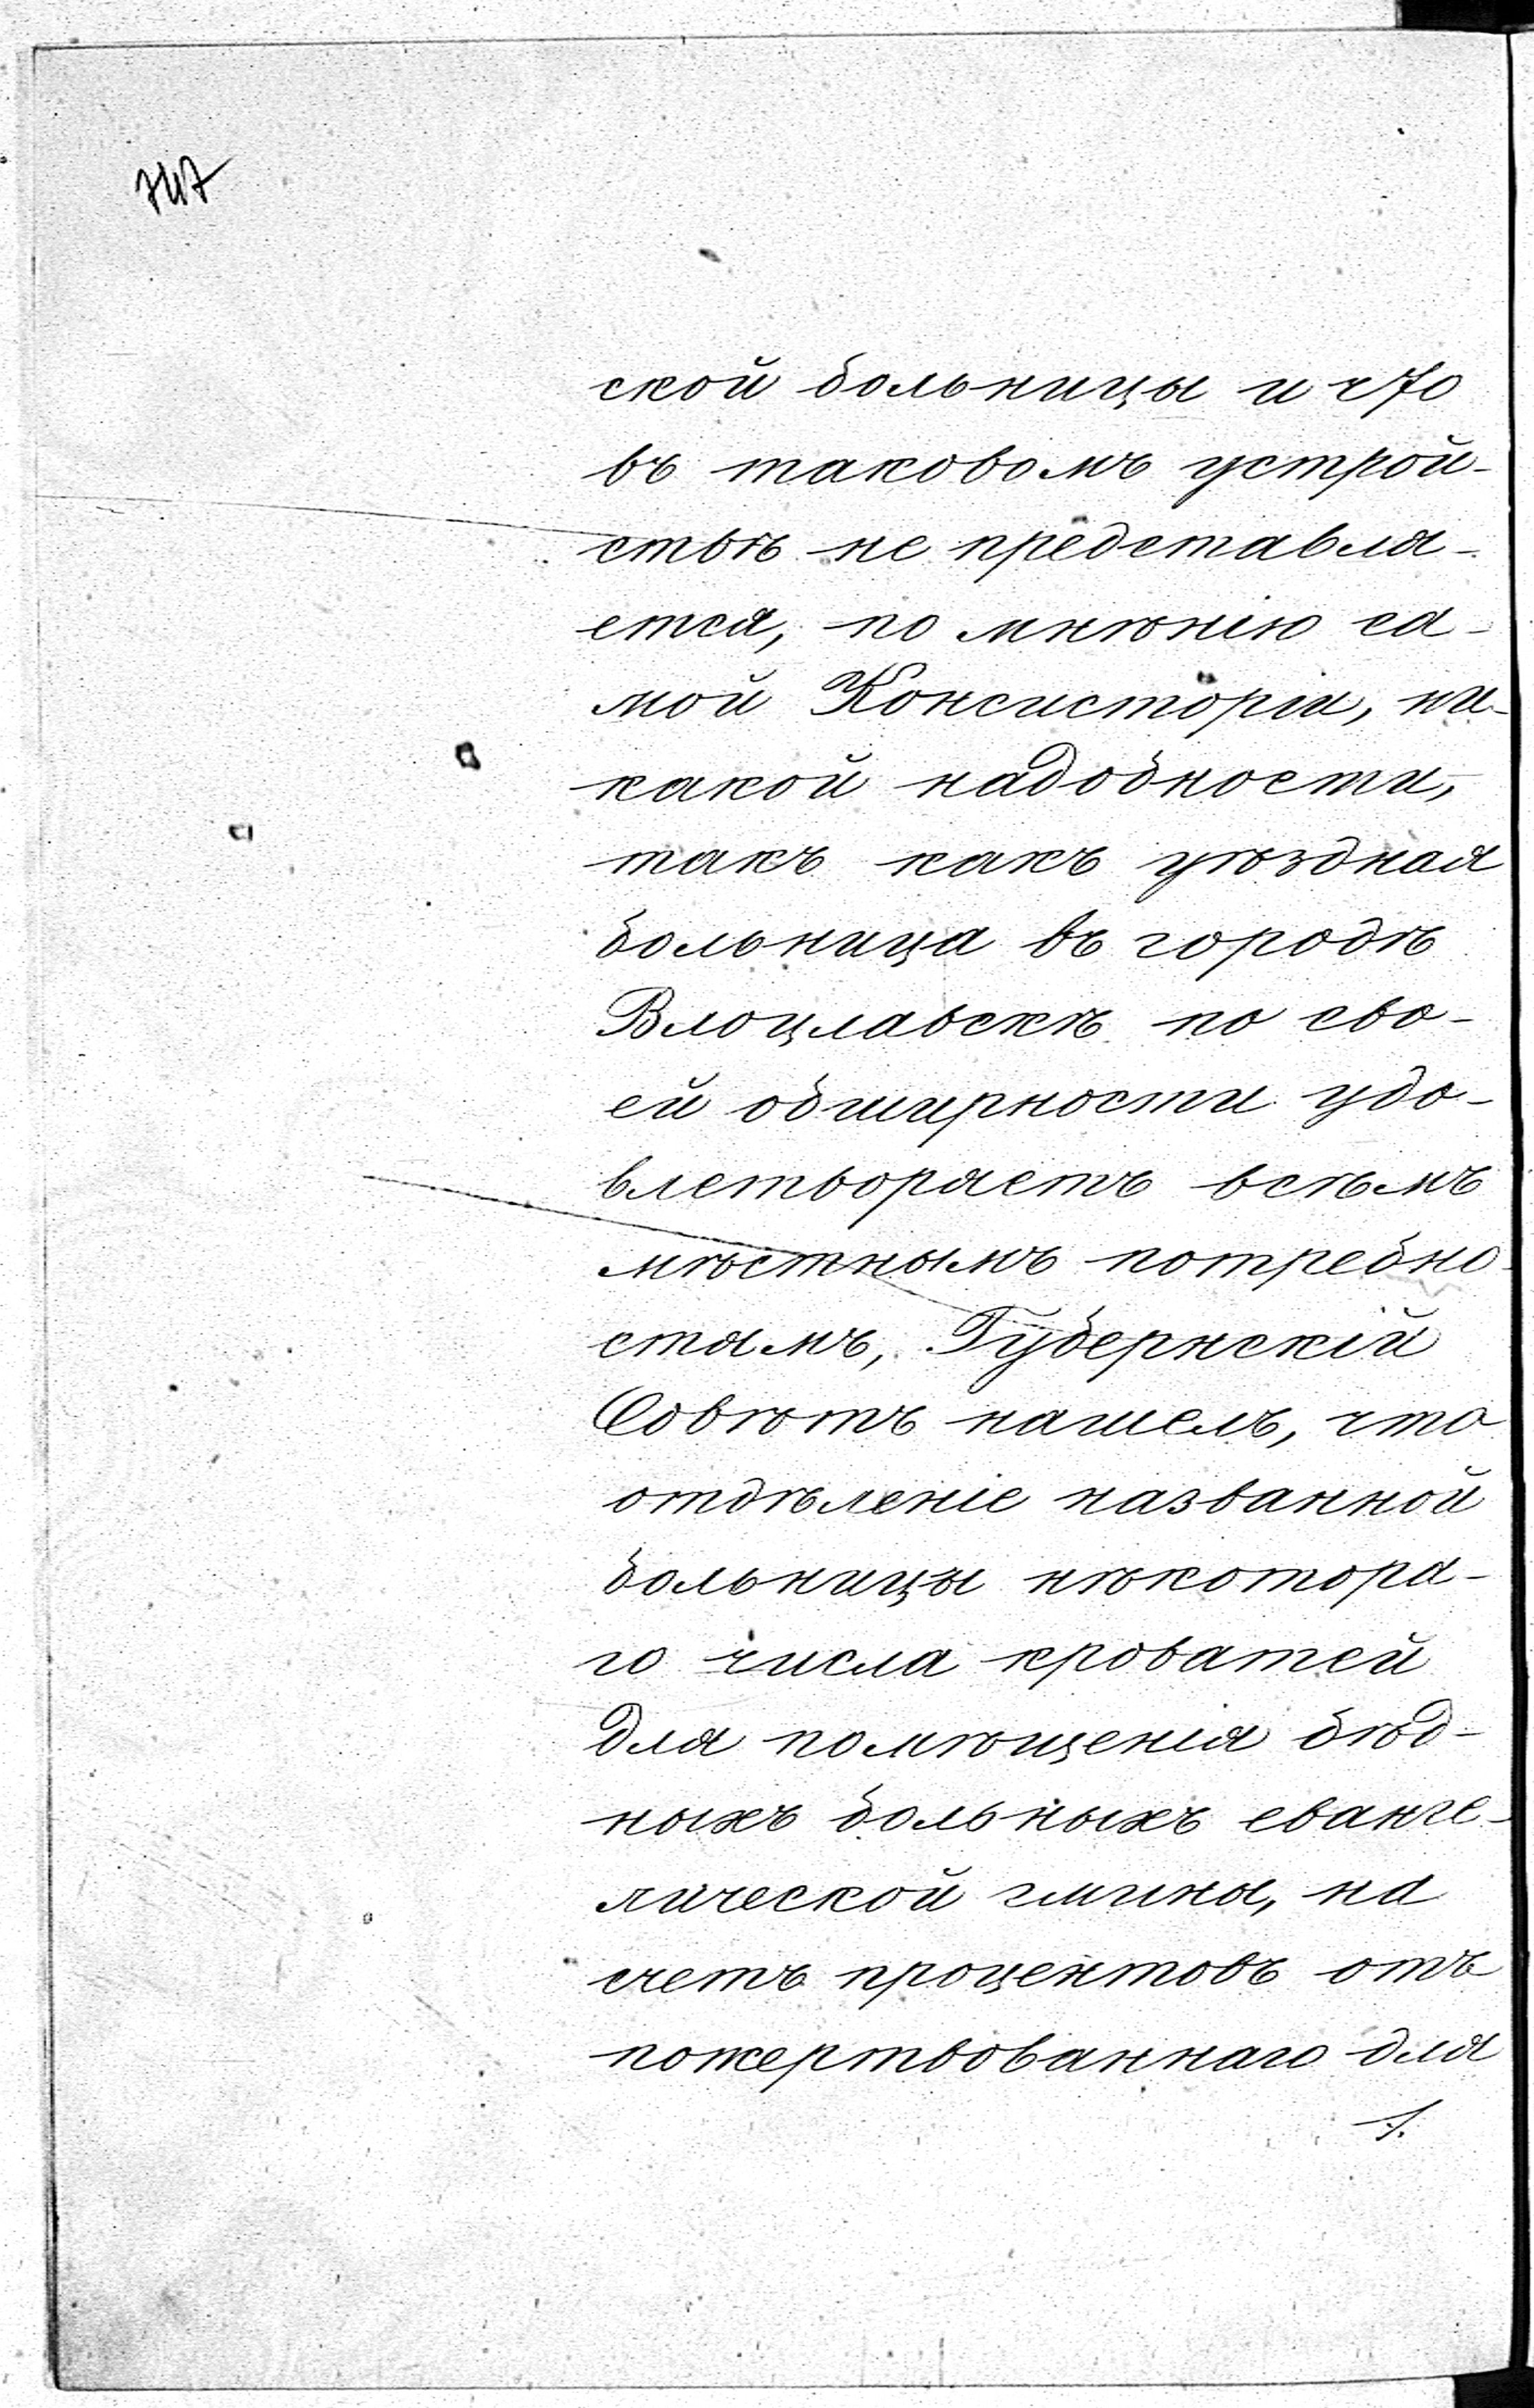 747
ской больницы и что
въ таковомъ устрой-
ствѣ не представля-
ется, по мнѣнію са-
мой Консисторіи, ни-
какой надобности,
такъ какъ уѣздная
больница въ городѣ
Влоцлавскѣ по сво-
ей обширности удо-
влетворяетъ всѣмъ
мѣстнымъ потребно-
стямъ, Губернскій
Совѣтъ нашелъ, что
отдѣленіе названной
больницы нѣкотора-
го числа кроватей
для помѣщенія бѣд-
ныхъ больныхъ еванге-
лической гмины, на
счетъ процентовъ отъ
пожертвованнаго для